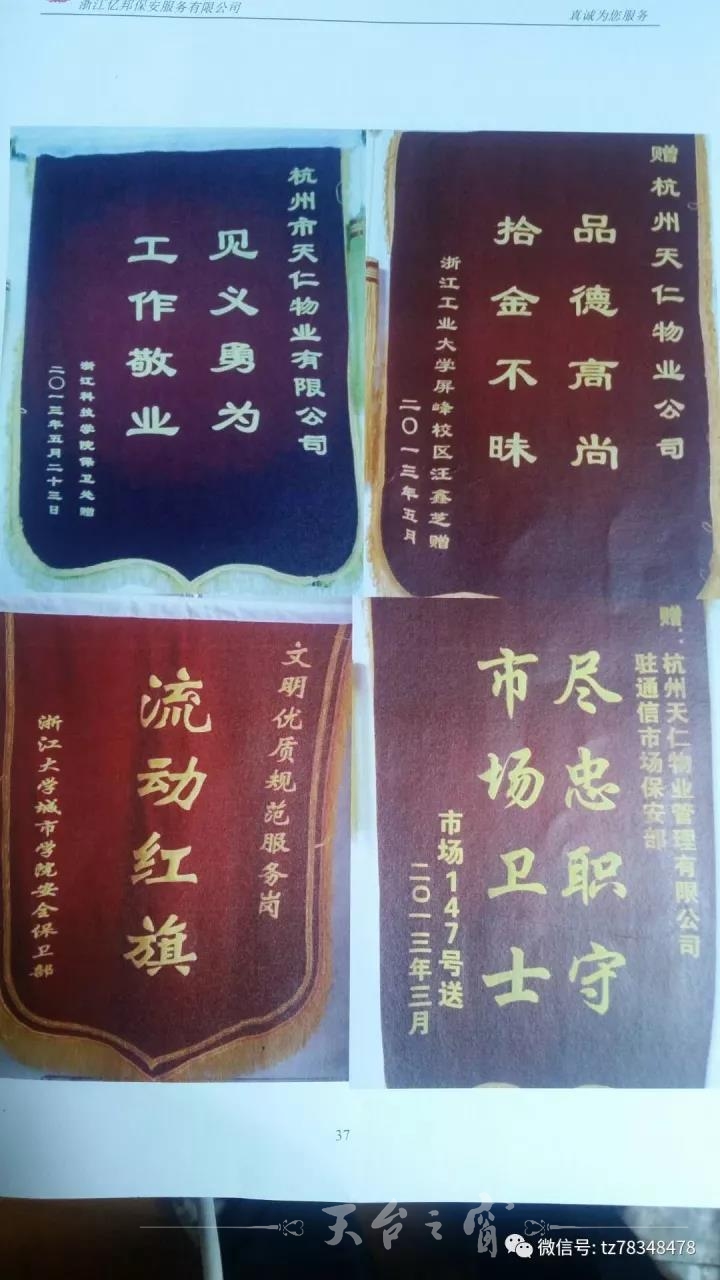 浙江亿邦保安服务有限公司
真诚为您服务
杭州市天仁物业有限公司
见义勇为
工作敬业
浙江科技学院保卫处赠
二〇一三年五月二十三日
赠杭州天仁物业公司
品德高尚
拾金不昧
浙江工业大学屏峰校区汪鑫芝赠
二〇一三年五月
文明优质规范服务岗
流动红旗
浙江大学城市学院安全保卫部
赠：杭州天仁物业管理有限公司
驻通信市场保安部
尽忠职守
市场卫士
市场147号送
二〇一三年三月
37
天台之窗
微信号: tz78348478